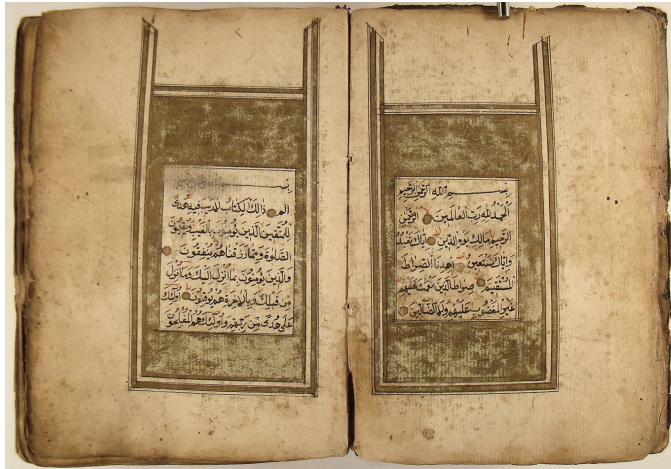 بسم الله الرحمن الرحيم
الحمد لله رب العالمين الرحمن
الرحيم مالك يوم الدين اياك نعبد
واياك نستعين اهدنا الصراط
المستقيم صراط الذين انعمت عليهم
غير المغضوب عليهم ولا الضالين
بسـ
الم ذالك الكتاب لا ريب فيه هدى
للمتقين الذين يؤمنون بالغيب ويقيمون
الصلوة ومما رزقناهم ينفقون
والذين يؤمنون بما انزل اليك وما انزل
من قبلك وبالاخرة هم يوقنون اولئك
على هدى من ربهم واولئك هم المفلحون